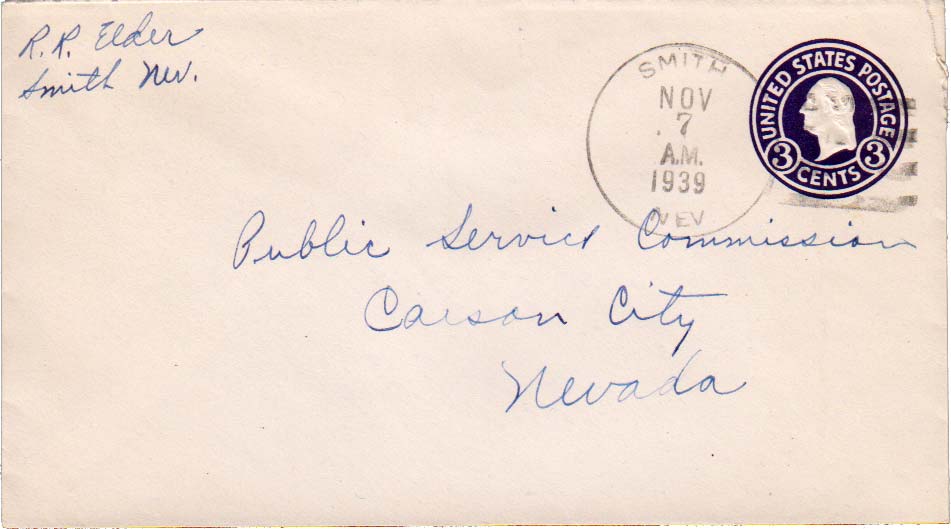 R. R. Elder
Smith Nev.
SMITH
NOV
7
A.M.
1939
NEV
UNITED STATES POSTAGE
3 CENTS 3
Public Service Commission
Carson City
Nevada